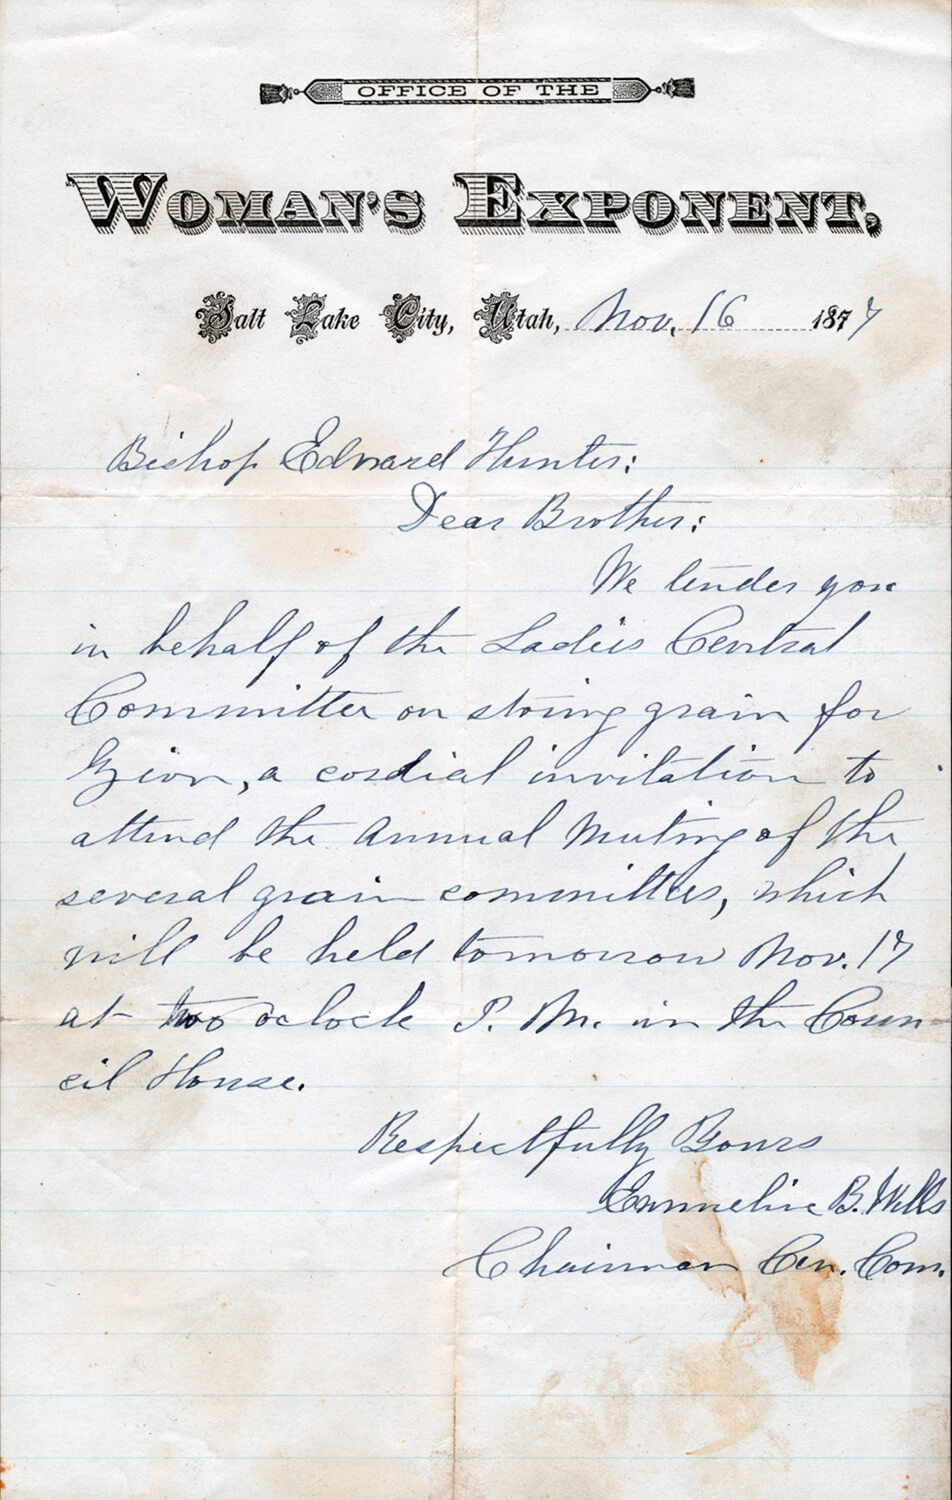 OFFICE OF THE
WOMAN'S EXPONENT,
Salt Lake City, Utah, Nov. 16 1877
Bishop Edward Hunter:
Dear Brother:
We tender you
in behalf of the Ladies Central
Committee on storing grain for
Zion, a cordial invitation to
attend the Annual Meeting of the
several grain committees, which
will be held tomorrow Nov. 17
at two o'clock P. M. in the Coun-
cil House.
Respectfully Yours
Emmeline B. Wells
Chairman Cen. Com.